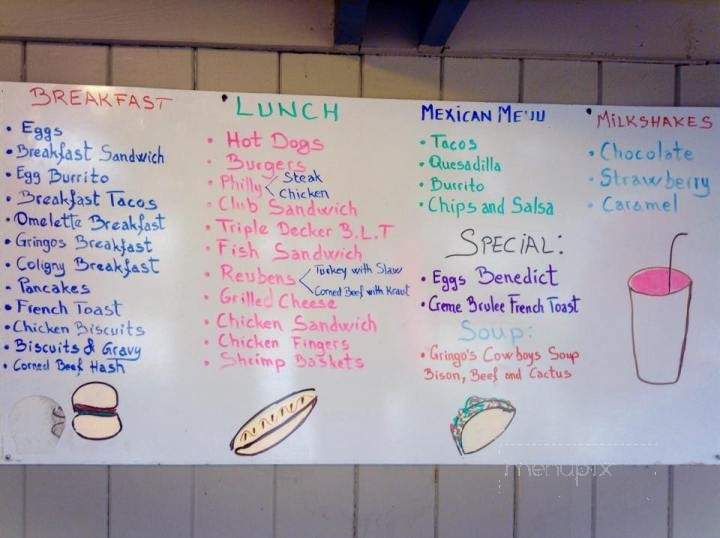 BREAKFAST
• Eggs
• Breakfast Sandwich
• Egg Burrito
• Breakfast Tacos
• Omelette Breakfast
• Gringos Breakfast
• Coligny Breakfast
• Pancakes
• French Toast
• Chicken Biscuits
• Biscuits & Gravy
• Corned Beef Hash
LUNCH
• Hot Dogs
• Burgers
• Philly < Steak
Chicken
• Club Sandwich
• Triple Decker B.L.T
• Fish Sandwich
• Reubens < Turkey with Slaw
Corned Beef with Kraut
• Grilled Cheese
• Chicken Sandwich
• Chicken Fingers
• Shrimp Baskets
MEXICAN MENU
• Tacos
• Quesadilla
• Burrito
• Chips and Salsa
SPECIAL:
• Eggs Benedict
• Creme Brulee French Toast
Soup:
• Gringo's Cowboys Soup
Bison, Beef and Cactus
MILKSHAKES
• Chocolate
• Strawberry
• Caramel
menupix